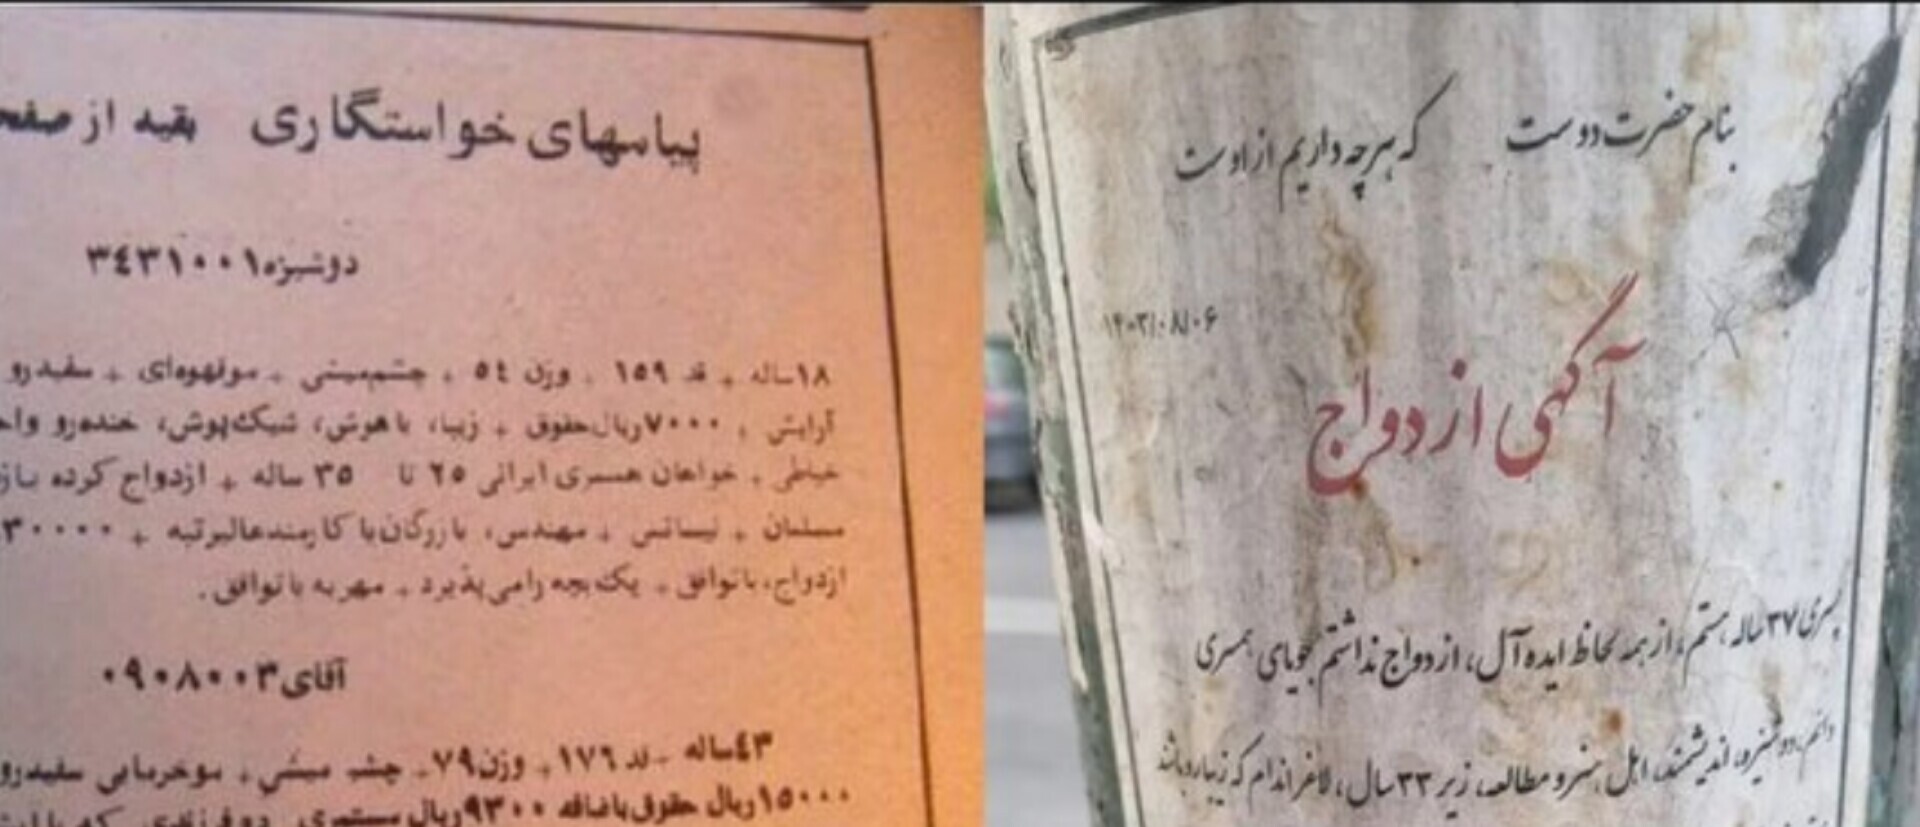 پیامهای خواستگاری بقیه از صفح
دوشیزه ۳۴۳۱۰۰۱
۱۸ساله + قد ۱۵۹ + وزن ۵۴ + چشم‌میشی + موقهوه‌ای + سفیدرو
آرایش + ۷۰۰۰ریال‌حقوق + زیبا، باهوش، شیک‌پوش، خنده‌رو
خیاطی + خواهان همسری ایرانی ۲۵ تا ۳۵ ساله + ازدواج کرده
مسلمان + لیسانس + مهندس، بازرگان‌یا کارمندعالیرتبه + ۳۰۰۰۰
ازدواج، باتوافق + یک‌بچه رامی‌پذیرد + مهریه باتوافق.
آقای ۰۹۰۸۰۰۳
۴۳ساله - قد ۱۷۶ + وزن ۷۹- چشم میشی + موخرمایی سفیدرو
۱۵۰۰۰ریال حقوق‌باضافه ۹۳۰۰ریال‌مستمری
بنام حضرت دوست که هرچه داریم از اوست
۱۴۰۳/۰۸/۰۶
آگهی ازدواج
پسری ۳۷ ساله هستم، از همه لحاظ ایده‌آل، ازدواج نداشتم جویای همسری
دائم، دوشیزه، اندیشمند، اهل هنر و مطالعه، زیر ۳۳ سال، لاغر اندام که زیبارو باشد